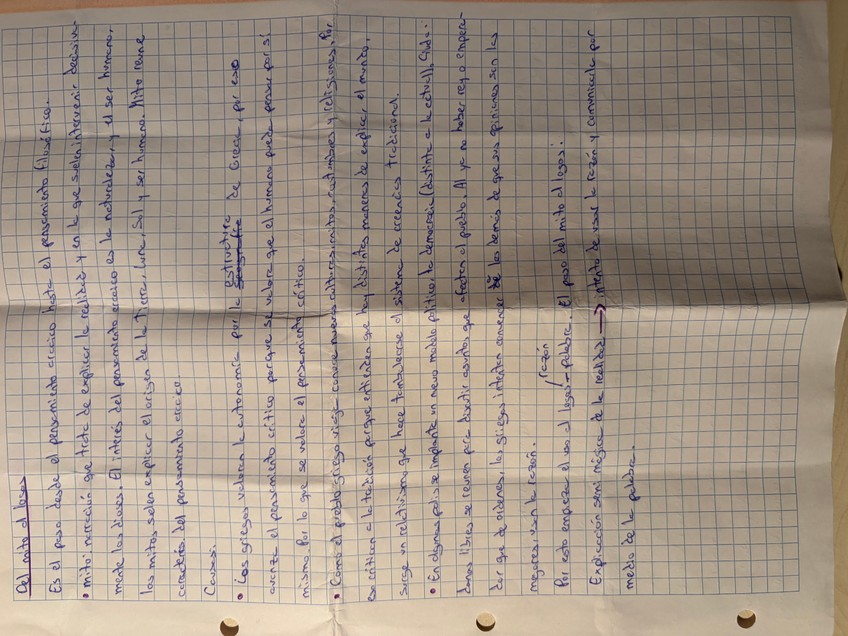 Del mito al logos
Es el paso desde el pensamiento arcaico hasta el pensamiento filosófico.
• Mito: narración que trata de explicar la realidad y en la que suelen intervenir decisiva-
mente los dioses. El interés del pensamiento arcaico es la naturaleza, y el ser humano,
los mitos suelen explicar el origen de la Tierra, Luna, Sol y ser humano. Mito reúne
caracteres del pensamiento arcaico.
Causas:
• Los griegos valoran la autonomía por la estructura de Grecia, por eso
avanza el pensamiento crítico porque se valora que el humano pueda pensar por sí
mismo. Por lo que se valora el pensamiento crítico.
• Como el pueblo griego viaja conoce nuevas culturas, mitos, costumbres y religiones. Por
eso critican a la tradición porque entienden que hay distintas maneras de explicar el mundo,
surge un relativismo que hace tambalearse al sistema de creencias tradicional.
• En algunas polis se implanta un nuevo modelo político: la democracia (distinta a la actual). Ciuda-
danos libres se reúnen para discutir asuntos que afectan al pueblo. Al ya no haber rey o empera-
dor que da órdenes, los griegos intentan convencer a los demás de que sus opiniones son las
mejores, usan la razón.
Por esto empieza el uso al logos - palabra. El paso del mito al logos:
razón
Explicación semi mágica de la realidad → intento de usar la razón y comunicarla por
medio de la palabra.